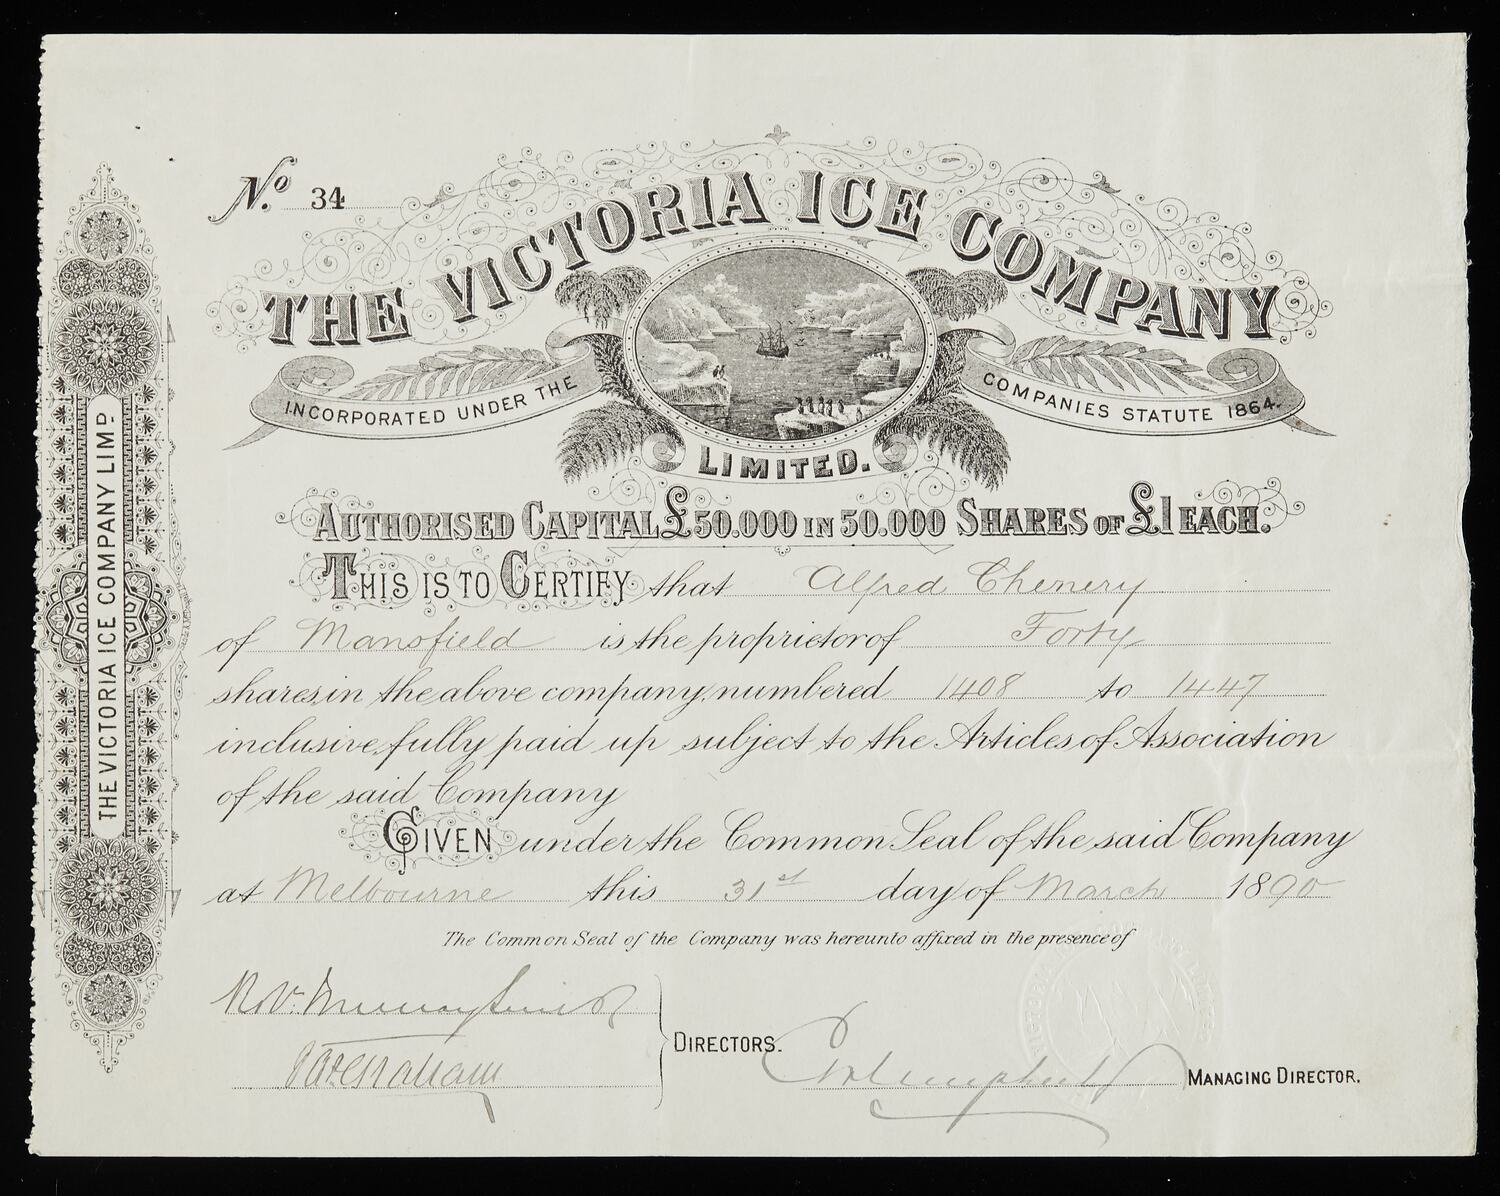 No. 34
THE VICTORIA ICE COMPANY
INCORPORATED UNDER THE COMPANIES STATUTE 1864.
LIMITED.
AUTHORISED CAPITAL £50.000 IN 50.000 SHARES OF £1 EACH.
THIS IS TO CERTIFY that Alfred Chenery
of Mansfield is the proprietor of Forty
shares in the above company, numbered 1408 to 1447
inclusive, fully paid up subject to the Articles of Association
of the said Company
GIVEN under the Common Seal of the said Company
at Melbourne this 31st day of March 1890
The Common Seal of the Company was hereunto affixed in the presence of
DIRECTORS.
MANAGING DIRECTOR.
THE VICTORIA ICE COMPANY LIMD.